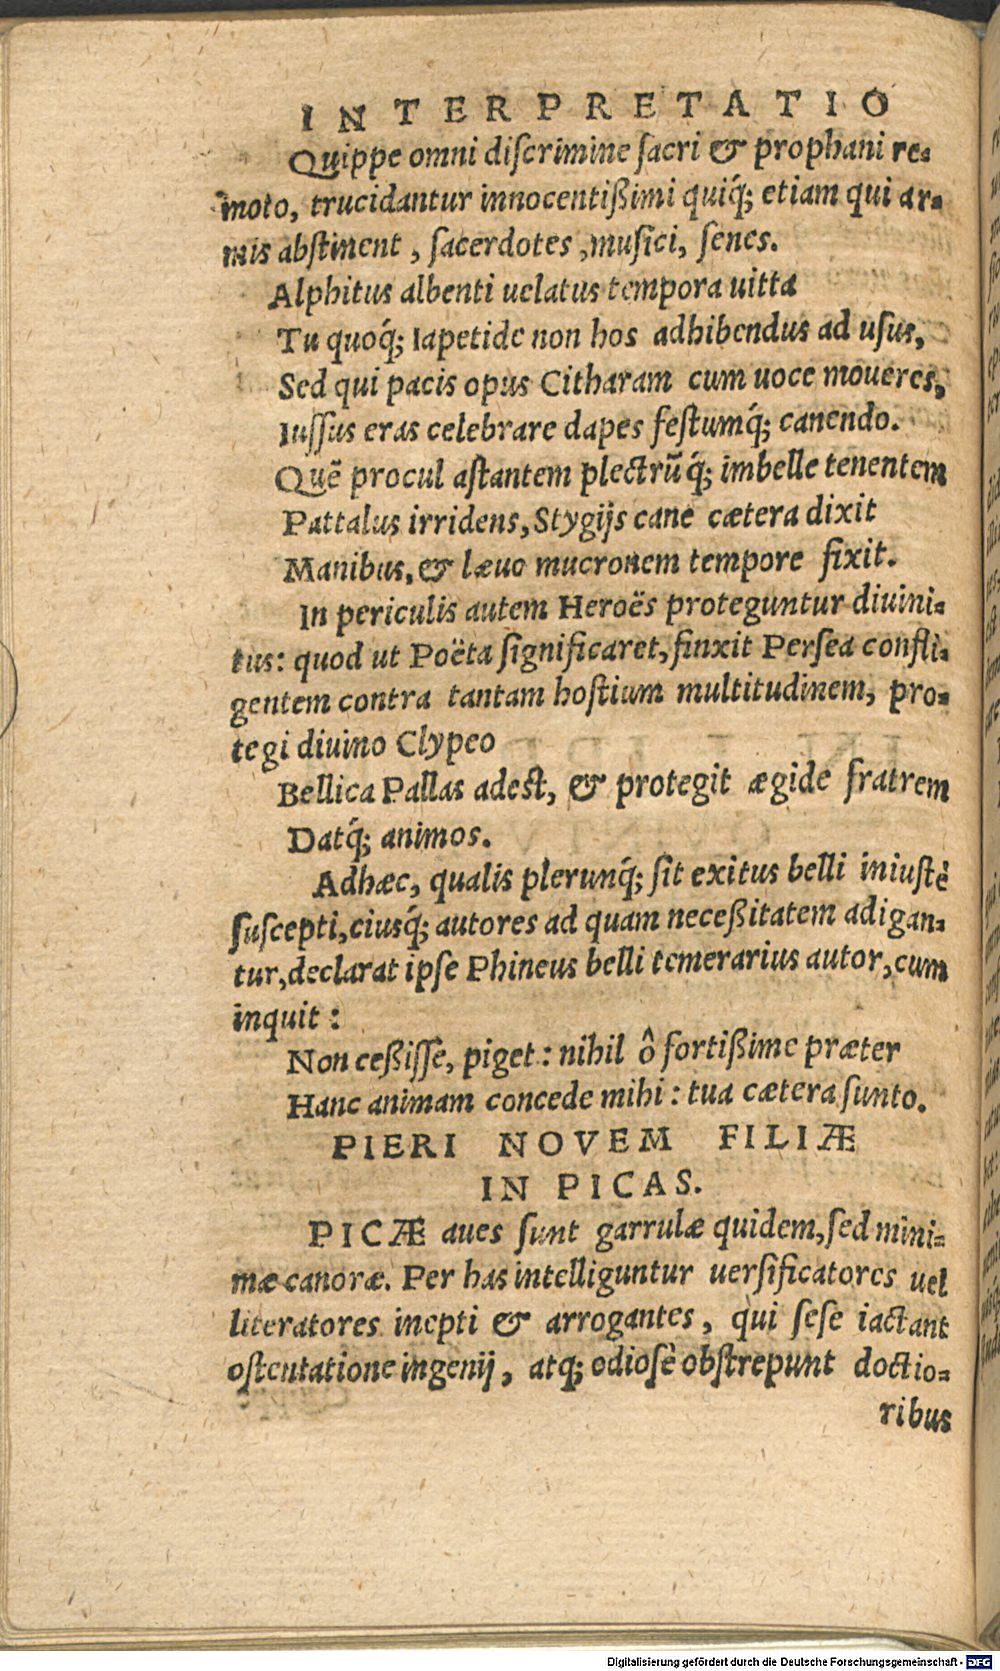 INTERPRETATIO
Quippe omni diſcrimine ſacri & prophani re-
moto, trucidantur innocentiſſimi quiq́; etiam qui ar-
mis abſtinent, ſacerdotes, muſici, ſenes.
Alphitus albenti uelatus tempora uitta
Tu quoq́; Iapetide non hos adhibendus ad uſus,
Sed qui pacis opus Citharam cum uoce moueres,
Iuſſus eras celebrare dapes feſtumq́; canendo.
Quẽ procul aſtantem plectrũq́; imbelle tenentem
Pattalus irridens, Stygijs cane cætera dixit
Manibus, & læuo mucronem tempore fixit.
In periculis autem Heroës proteguntur diuini-
tus: quod ut Poëta ſignificaret, finxit Perſea confli-
gentem contra tantam hoſtium multitudinem, pro-
tegi diuino Clypeo
Bellica Pallas adeſt, & protegit ægide fratrem
Datq́; animos.
Adhæc, qualis plerunq́; ſit exitus belli iniuſtè
ſuſcepti, eiusq́; autores ad quam neceßitatem adigan-
tur, declarat ipſe Phineus belli temerarius autor, cum
inquit:
Non ceßiſſe, piget: nihil ô fortißime præter
Hanc animam concede mihi: tua cætera ſunto.
PIERI NOVEM FILIÆ
IN PICAS.
PICÆ aues ſunt garrulæ quidem, ſed mini-
mæ canoræ. Per has intelliguntur uerſificatores uel
literatores inepti & arrogantes, qui ſeſe iactant
oſtentatione ingenij, atq; odioſè obſtrepunt doctio-
ribus
Digitalisierung gefördert durch die Deutsche Forschungsgemeinschaft - DFG